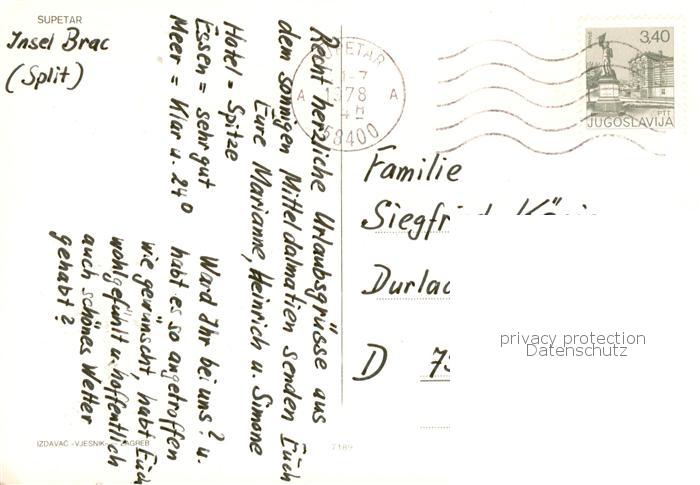 SUPETAR
Insel Brac
(Split)
Recht herzliche Urlaubsgrüsse aus
dem sonnigen Mitteldalmatien senden Euch
Eure Marianne, Heinrich u. Simone
Hotel = Spitze
Essen = sehr gut
Meer = Klar u. 24°
Ward Ihr bei uns? u.
habt es so angetroffen
wie gewünscht, habt Euch
wohlgefühlt u. hoffentlich
auch schönes Wetter
gehabt?
IZDAVAČ »VJESNIK« – ZAGREB
7189
SUPETAR
1978
A A
58400
3,40
PTT
JUGOSLAVIJA
Familie
Siegfr
Durlac
D 75
privacy protection
Datenschutz